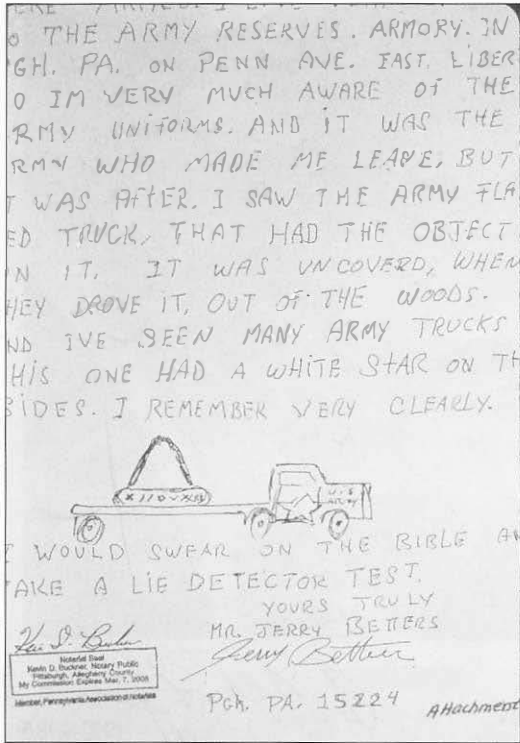 O THE ARMY RESERVES. ARMORY. IN
GH. PA. ON PENN AVE. EAST. LIBER
O IM VERY MUCH AWARE OF THE
RMY UNIFORMS. AND IT WAS THE
RMY WHO MADE ME LEAVE, BUT
T WAS AFTER. I SAW THE ARMY FLA
ED TRUCK, THAT HAD THE OBJECT
N IT. IT WAS UNCOVERD, WHEN
HEY DROVE IT, OUT OF THE WOODS.
ND IVE SEEN MANY ARMY TRUCKS
HIS ONE HAD A WHITE STAR ON TH
SIDES. I REMEMBER VERY CLEARLY.
U.S
ARMY
I WOULD SWEAR ON THE BIBLE AN
TAKE A LIE DETECTOR TEST.
YOURS TRULY
MR. JERRY BETTERS
Jerry Betters
Notarial Seal
Kevin D. Buckner, Notary Public
Pittsburgh, Allegheny County
My Commission Expires Mar. 7, 2008
Member, Pennsylvania Association of Notaries
Pgh. PA. 15224
Attachment